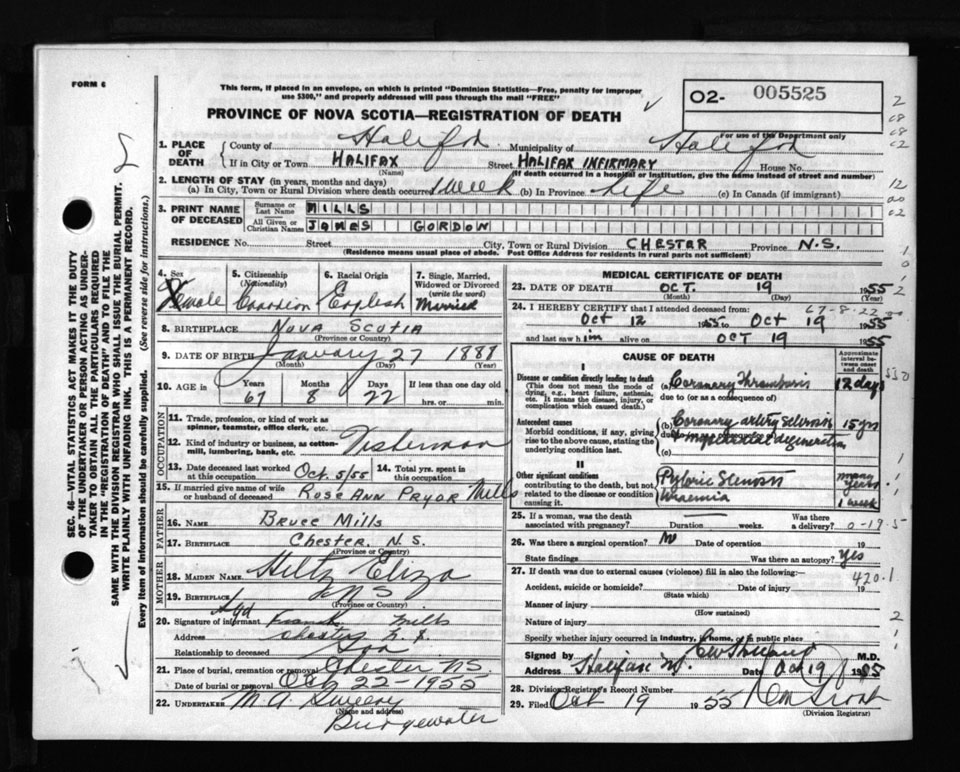 FORM 6
This form, if placed in an envelope, on which is printed "Dominion Statistics—Free, penalty for improper
use $300," and properly addressed will pass through the mail "FREE"
O2- 005525
For use of the Department only
PROVINCE OF NOVA SCOTIA—REGISTRATION OF DEATH
1. PLACE OF DEATH
County of Halifax Municipality of Halifax
If in City or Town HALIFAX (Name) Street HALIFAX INFIRMARY House No.
(If death occurred in a hospital or institution, give the name instead of street and number)
2. LENGTH OF STAY (in years, months and days)
(a) In City, Town or Rural Division where death occurred 1 week (b) In Province Life (c) In Canada (if immigrant)
3. PRINT NAME OF DECEASED
Surname or Last Name MILLS
All Given or Christian Names JAMES GORDON
RESIDENCE No. Street City, Town or Rural Division CHESTER Province N.S.
(Residence means usual place of abode. Post Office Address for residents in rural parts not sufficient)
4. Sex Male
5. Citizenship (Nationality) Canadian
6. Racial Origin English
7. Single, Married, Widowed or Divorced (write the word) Married
8. BIRTHPLACE NOVA SCOTIA
(Province or Country)
9. DATE OF BIRTH January 27 1888
(Month) (Day) (Year)
10. AGE in Years 67 Months 8 Days 22 If less than one day old
hrs. or min.
OCCUPATION
11. Trade, profession, or kind of work as
spinner, teamster, office clerk, etc.
12. Kind of industry or business, as cotton-
mill, lumbering, bank, etc. Fisherman
13. Date deceased last worked at this occupation Oct. 5/55 14. Total yrs. spent in this occupation
15. If married give name of wife
or husband of deceased Rose Ann Pryor Mills
FATHER
16. NAME Bruce Mills
17. BIRTHPLACE Chester, N.S.
(Province or Country)
MOTHER
18. MAIDEN NAME Hiltz Eliza
19. BIRTHPLACE N S
(Province or Country)
20. Signature of informant Sgd Frank Mills
Address Chester N S
Relationship to deceased Son
21. Place of burial, cremation or removal Chester NS
Date of burial or removal Oct 22-1955
22. UNDERTAKER M A Sweeny
(Name and address)
Bridgewater
MEDICAL CERTIFICATE OF DEATH
23. DATE OF DEATH OCT. 19 1955
(Month) (Day) (Year)
24. I HEREBY CERTIFY that I attended deceased from: 67-8-22
Oct 12 1955 to Oct 19 1955
and last saw him alive on OCT 19 1955
CAUSE OF DEATH
Approximate interval between onset and death
I
Disease or condition directly leading to death
(This does not mean the mode of dying, e.g., heart failure, asthenia, etc. It means the disease, injury, or complication which caused death.)
(a) Coronary thrombosis 12 days
due to (or as a consequence of)
Antecedent causes
Morbid conditions, if any, giving rise to the above cause, stating the underlying condition last.
(b) Coronary artery sclerosis 15 yrs
& myocardial degeneration
(c)
II
Other significant conditions
contributing to the death, but not related to the disease or condition causing it.
Pyloric Stenosis many years
Uraemia 1 week
25. If a woman, was the death
associated with pregnancy? Duration weeks. Was there a delivery? 0-19-5
26. Was there a surgical operation? No Date of operation 19
State findings Was there an autopsy? Yes
27. If death was due to external causes (violence) fill in also the following:—
420.1
Accident, suicide or homicide? Date of injury 19
(State which)
Manner of injury
(How sustained)
Nature of injury
Specify whether injury occurred in Industry, home, or in public place
Signed by M.D.
Address Halifax N.S. Date Oct 19 1955
28. Division Registrar's Record Number
29. Filed Oct 19 1955
(Division Registrar)
SEC. 46—VITAL STATISTICS ACT MAKES IT THE DUTY
OF THE UNDERTAKER OR PERSON ACTING AS UNDER-
TAKER TO OBTAIN ALL THE PARTICULARS REQUIRED
IN THE "REGISTRATION OF DEATH" AND TO FILE THE
SAME WITH THE DIVISION REGISTRAR WHO SHALL ISSUE THE BURIAL PERMIT.
WRITE PLAINLY WITH UNFADING INK. THIS IS A PERMANENT RECORD.
Every item of information should be carefully supplied. (See reverse side for instructions.)